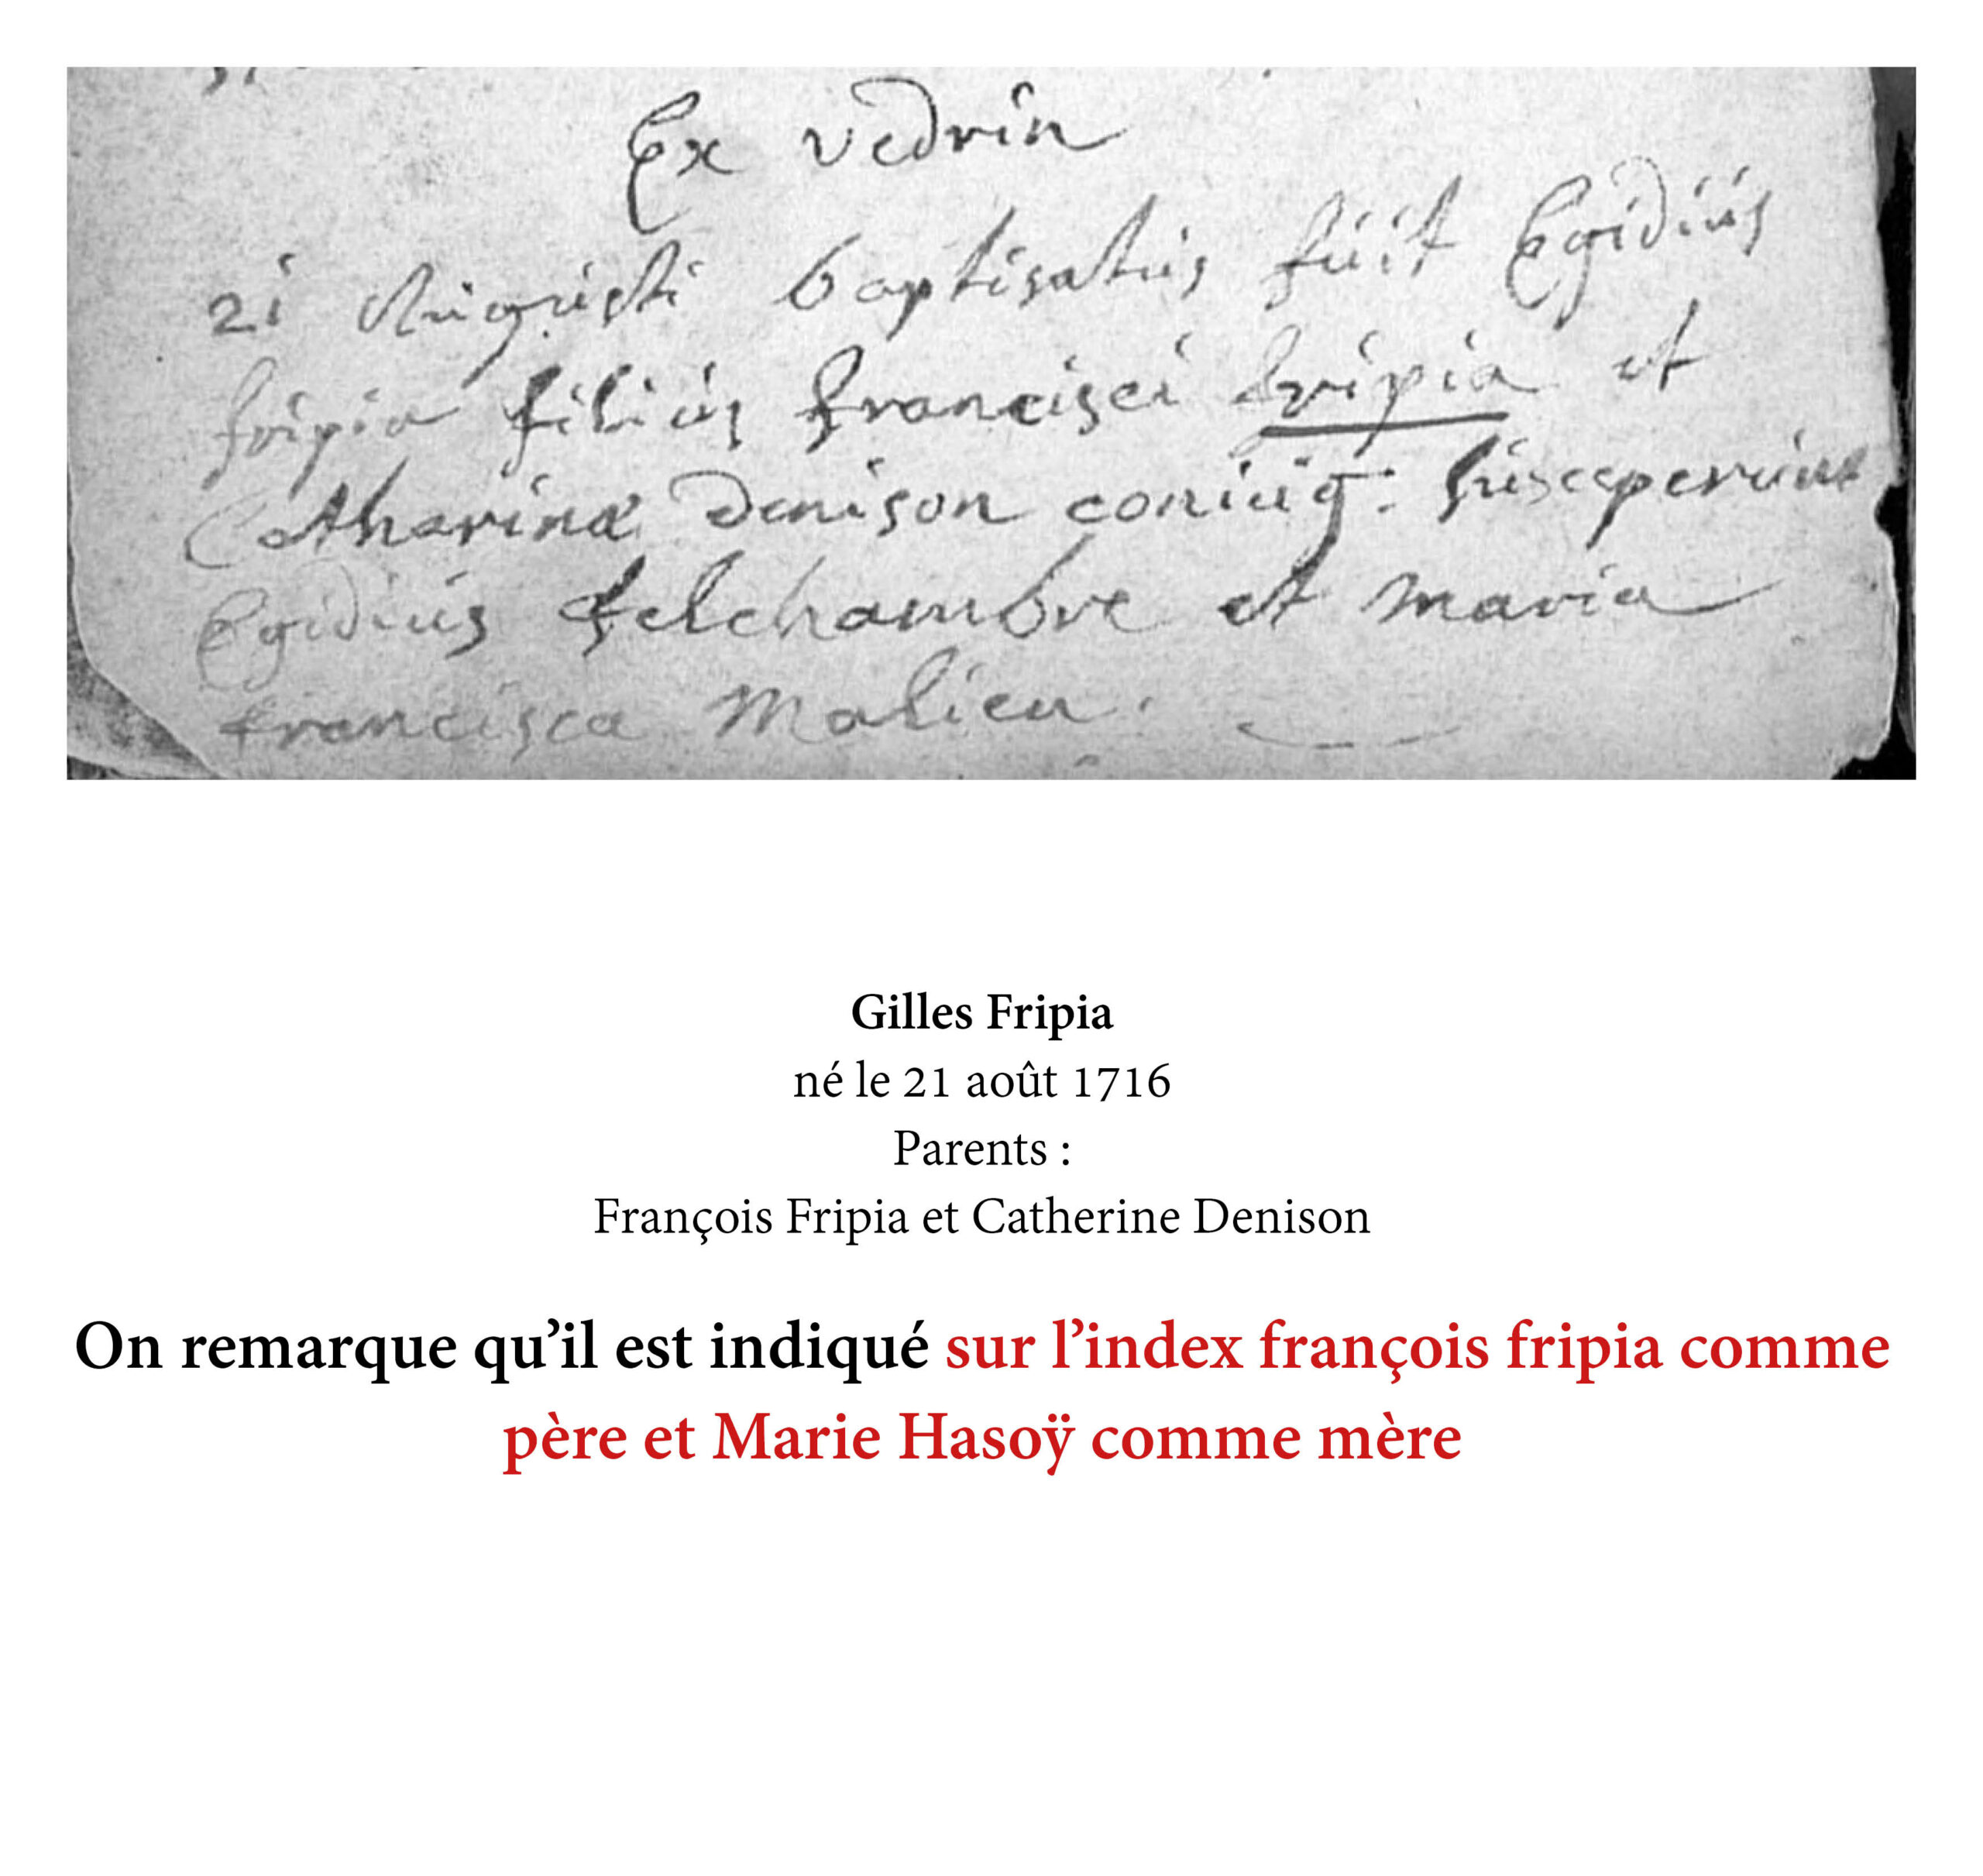 Ex vedrin
21 Augusti baptisatus fuit Egidius
fripia filius francisci fripia et
Catharinæ Denison coniug. susceperunt
Egidius delchambre et maria
francisca Malieu.
Gilles Fripia
né le 21 août 1716
Parents :
François Fripia et Catherine Denison
On remarque qu’il est indiqué sur l’index françois fripia comme
père et Marie Hasoÿ comme mère